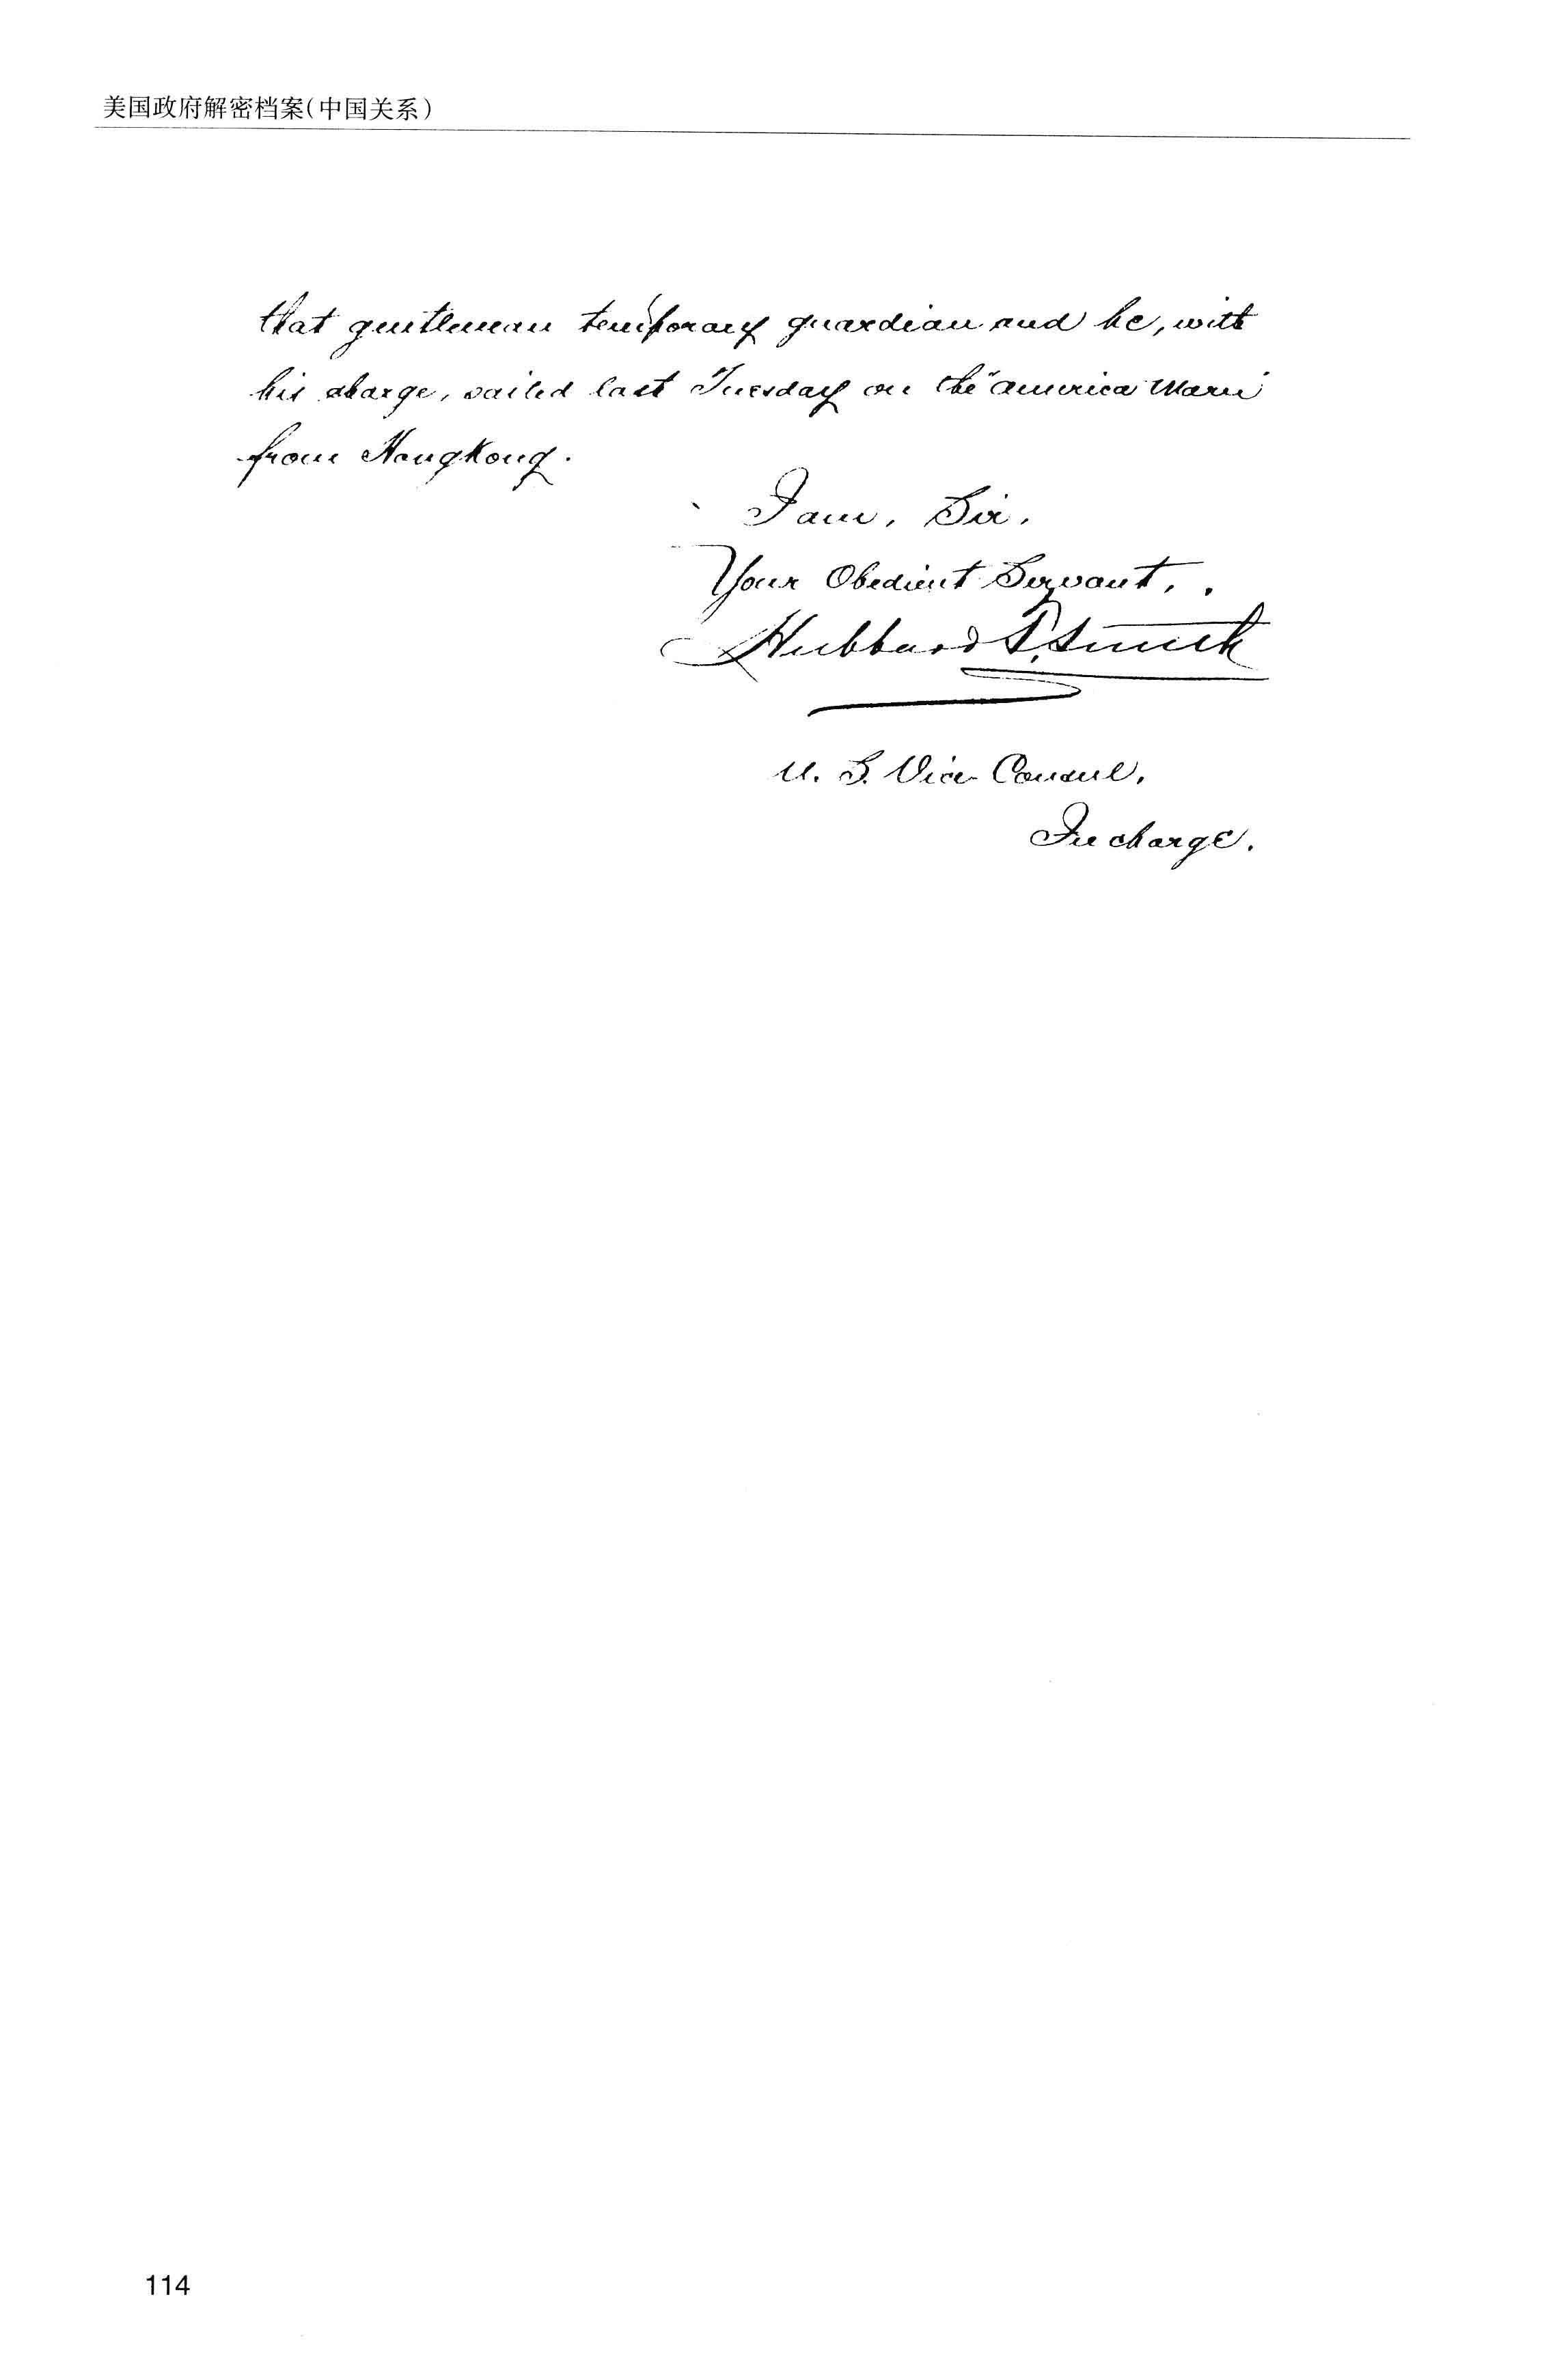 美国政府解密档案(中国关系)
that gentleman temporary guardian and he, with
his charge, sailed last Tuesday on the "America Maru"
from Hongkong.
I am, Sir,
Your Obedient Servant,
Hubbard T. Smith
U. S. Vice Consul,
In charge.
114